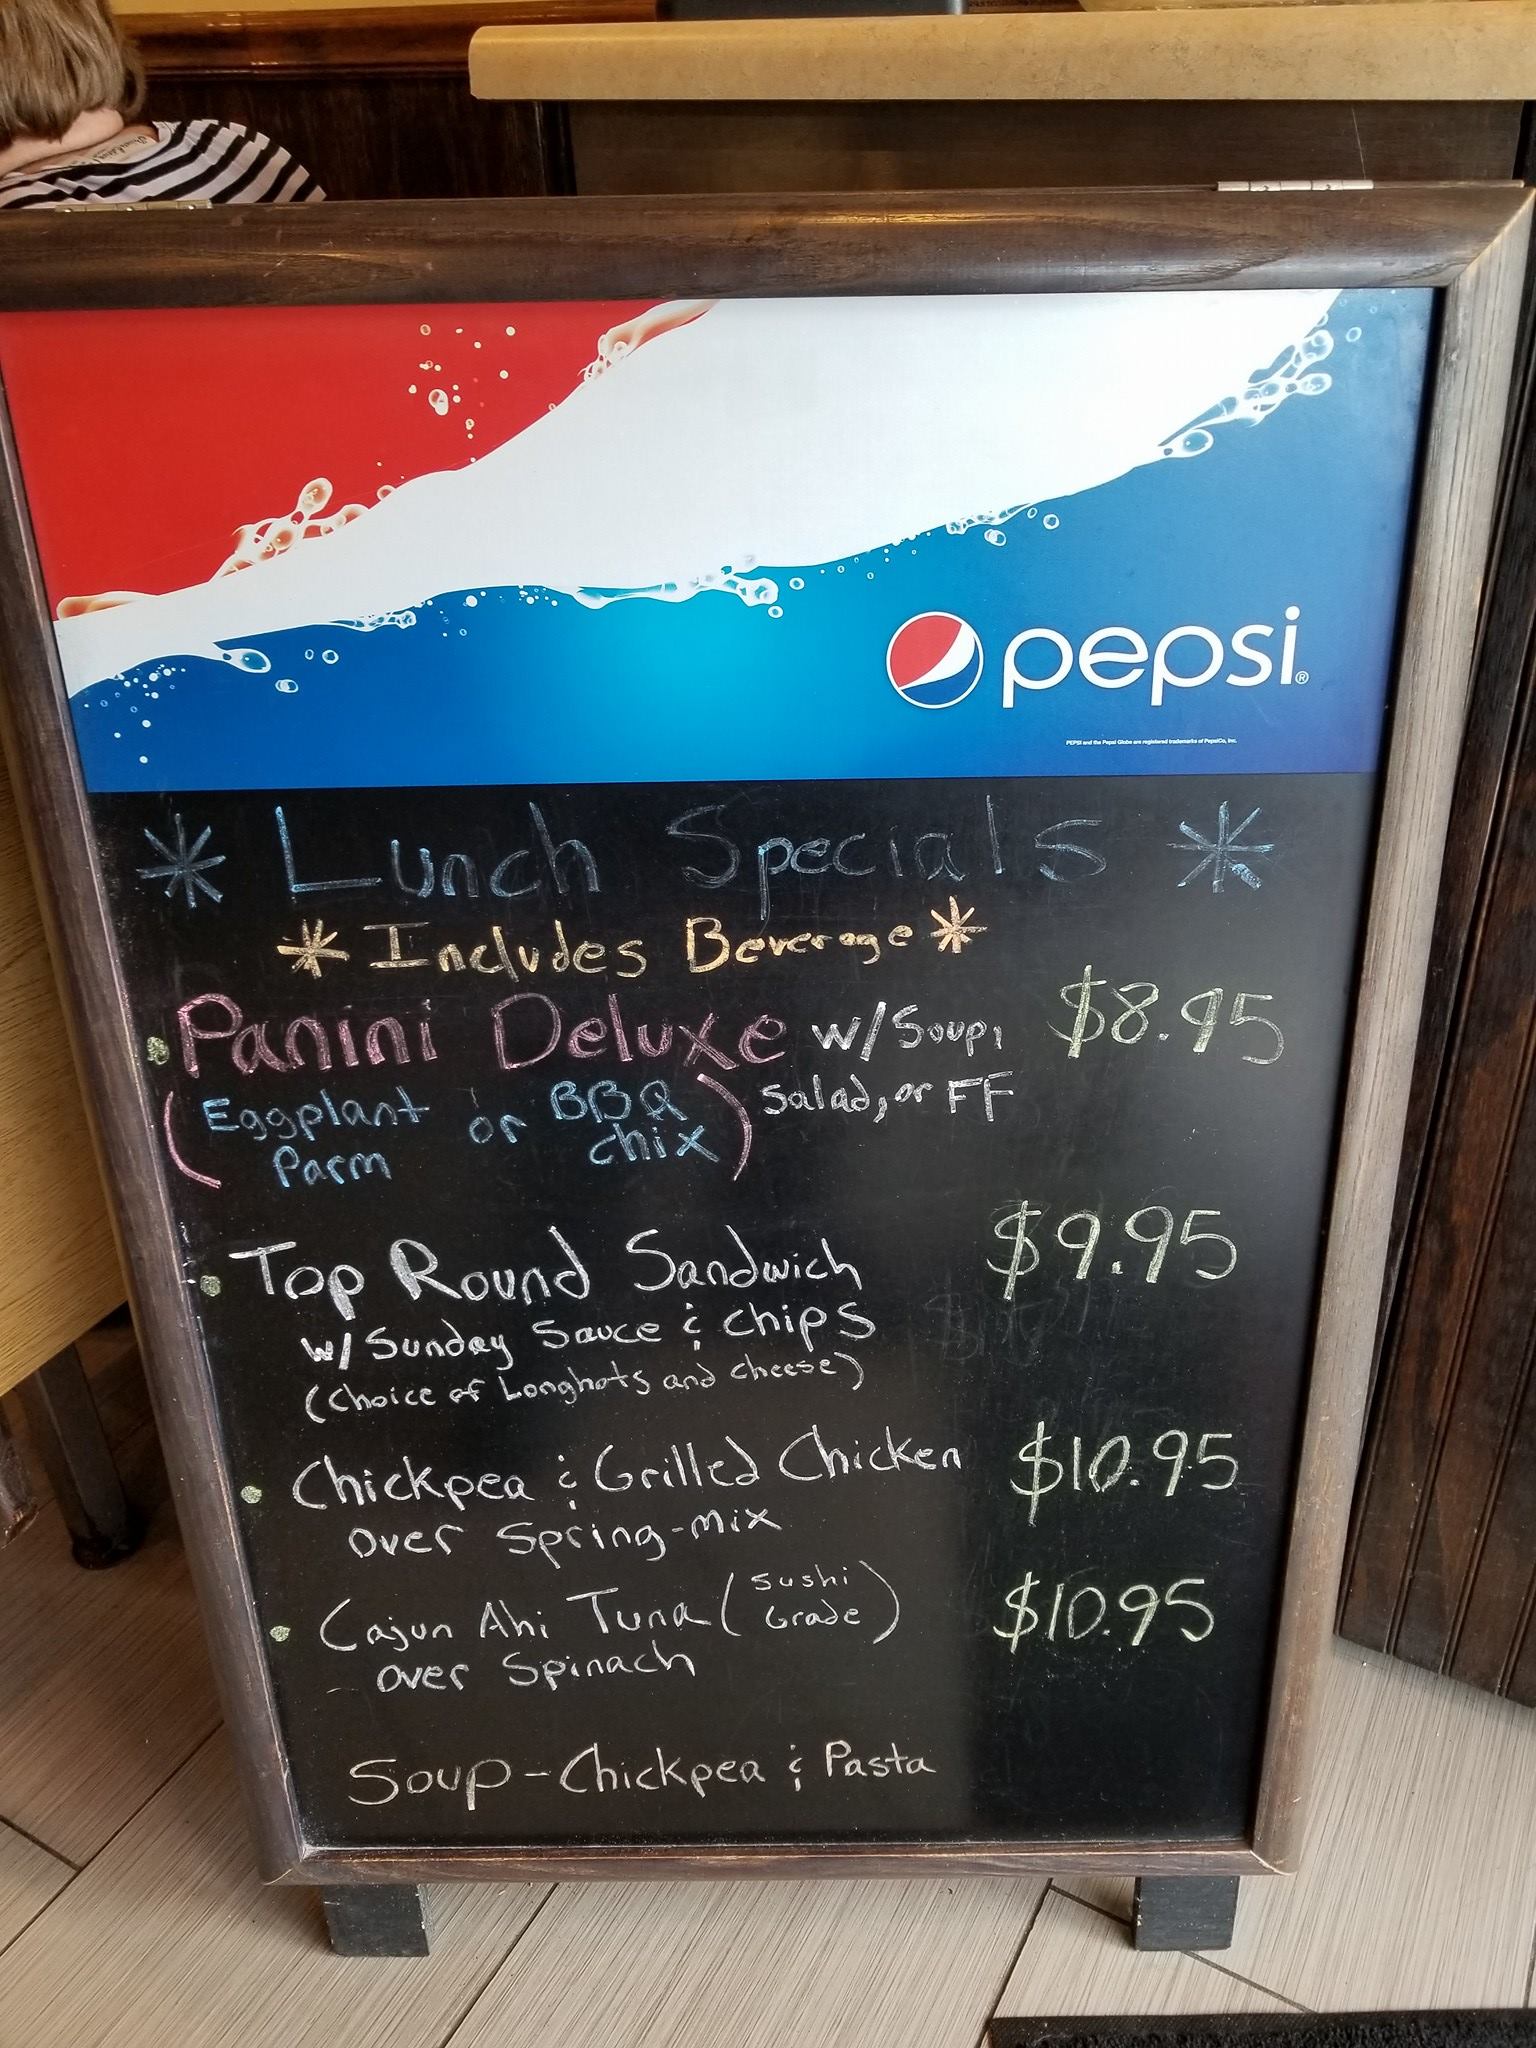 pepsi®
PEPSI and the Pepsi Globe are registered trademarks of PepsiCo, Inc.
* Lunch Specials *
* Includes Beverage *
• Panini Deluxe w/Soup, $8.95
(Eggplant or BBQ salad, or FF
Parm chix)
• Top Round Sandwich $9.95
w/ Sunday Sauce & chips
(choice of Longhots and cheese)
• Chickpea & Grilled Chicken $10.95
over Spring-mix
• Cajun Ahi Tuna (Sushi $10.95
Grade)
over Spinach
Soup - Chickpea & Pasta